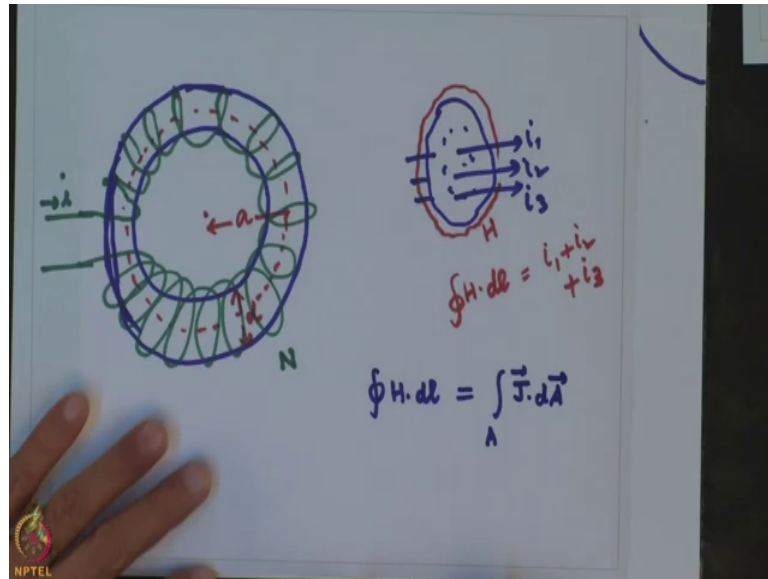 i
a
d
N
i₁
i₂
i₃
H
∮H·dl = i₁+i₂
+i₃
∮H·dl = ∫ J⃗·dA⃗
A
NPTEL